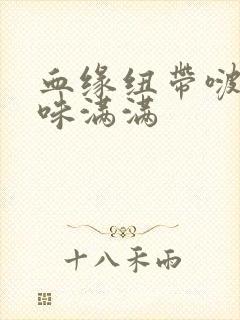 血缘纽带啵
味满满
十八禾雨